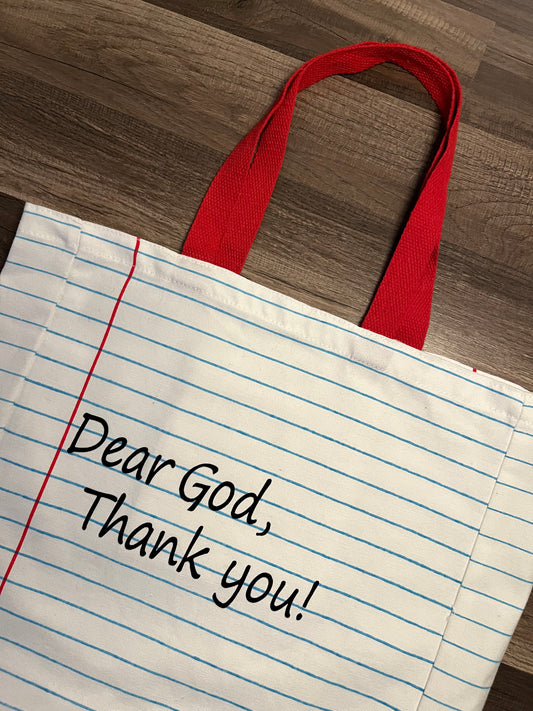 Dear God,
Thank you!